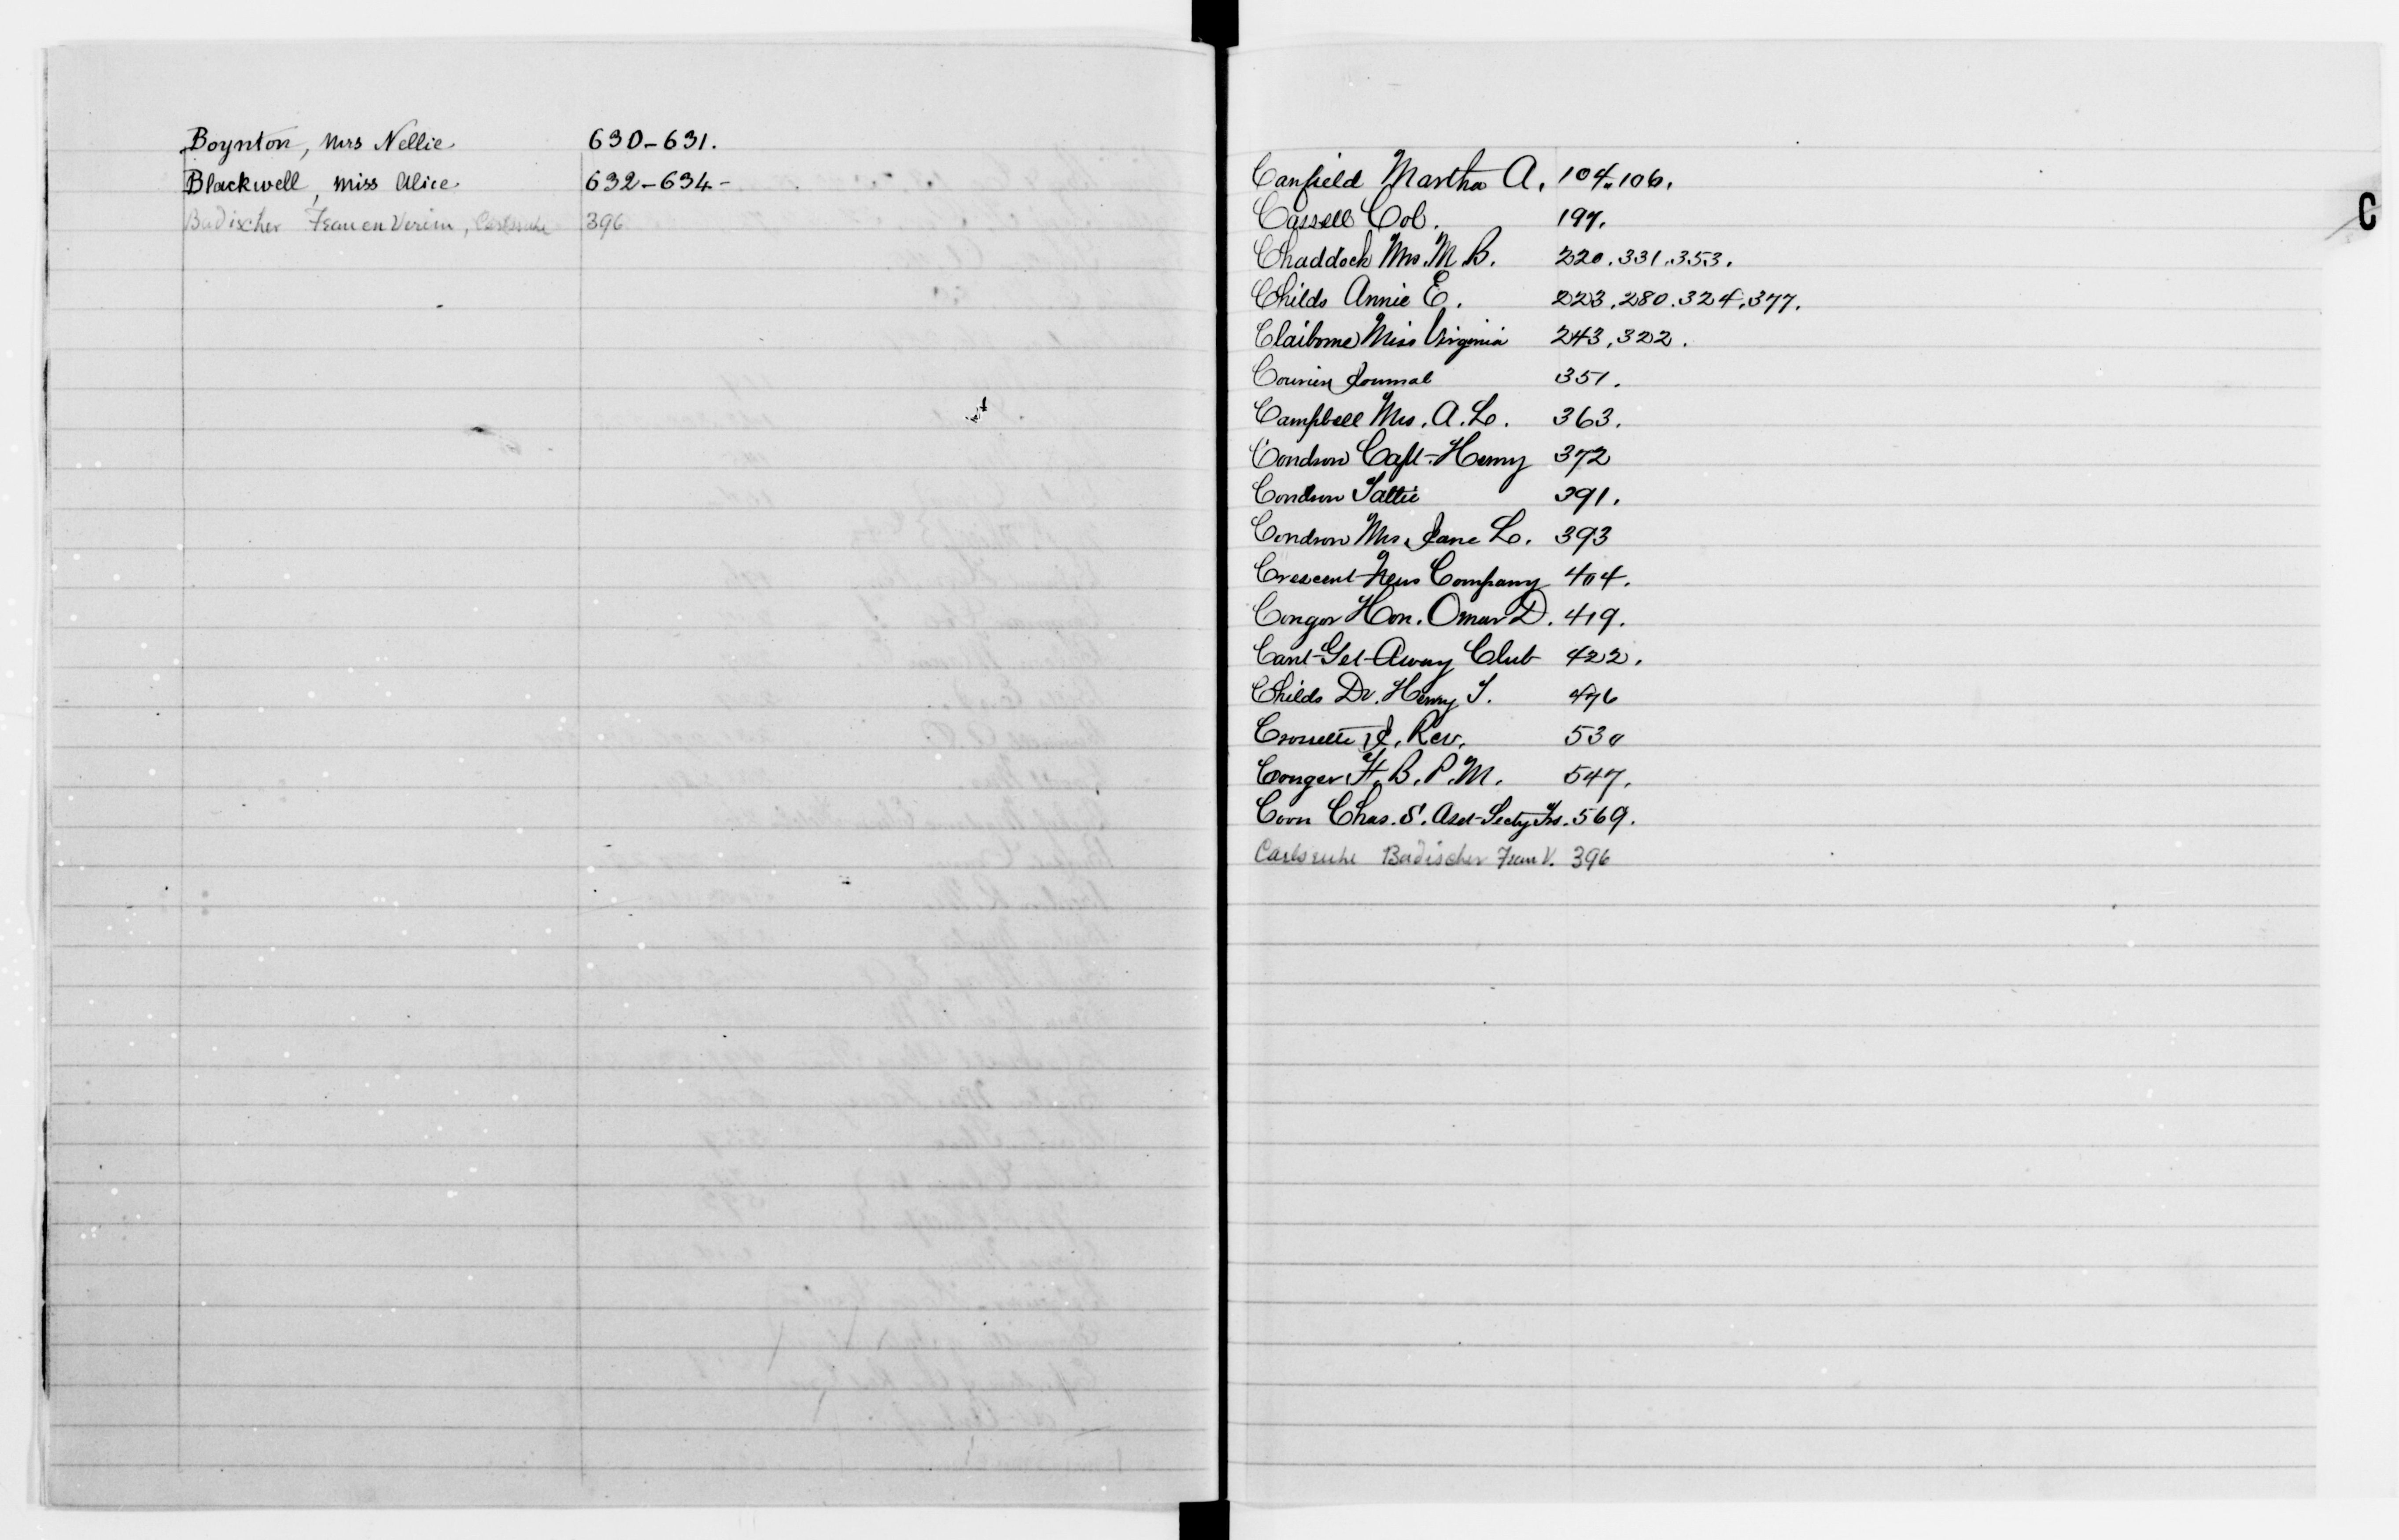 Boynton, Mrs Nellie. 630-631.
Blackwell, Miss Alice. 632-634-
Badischer Frauen Verein, Carlsruhe 396
C
Canfield Martha A. 104.106.
Cassell Col. 197.
Chaddock Mrs. M. B. 220.331.353.
Childs Annie E. 223.280.324.377.
Claiborne Miss Virginia 243.322.
Courier Journal 351.
Campbell Mrs. A. L. 363.
Condron Capt. Henry 372
Condron Tattie 391.
Condron Mrs. Jane L. 393
Crescent News Company 404.
Conger Hon. Omar D. 419.
Cant-Get-Away Club 422.
Childs Dr. Henry T. 476
J. Rev. 530
Conger H. B. P. M. 547.
Coon Chas. S. Asst-Secty Trs. 569.
Carlsruhe Badischer Frau V. 396